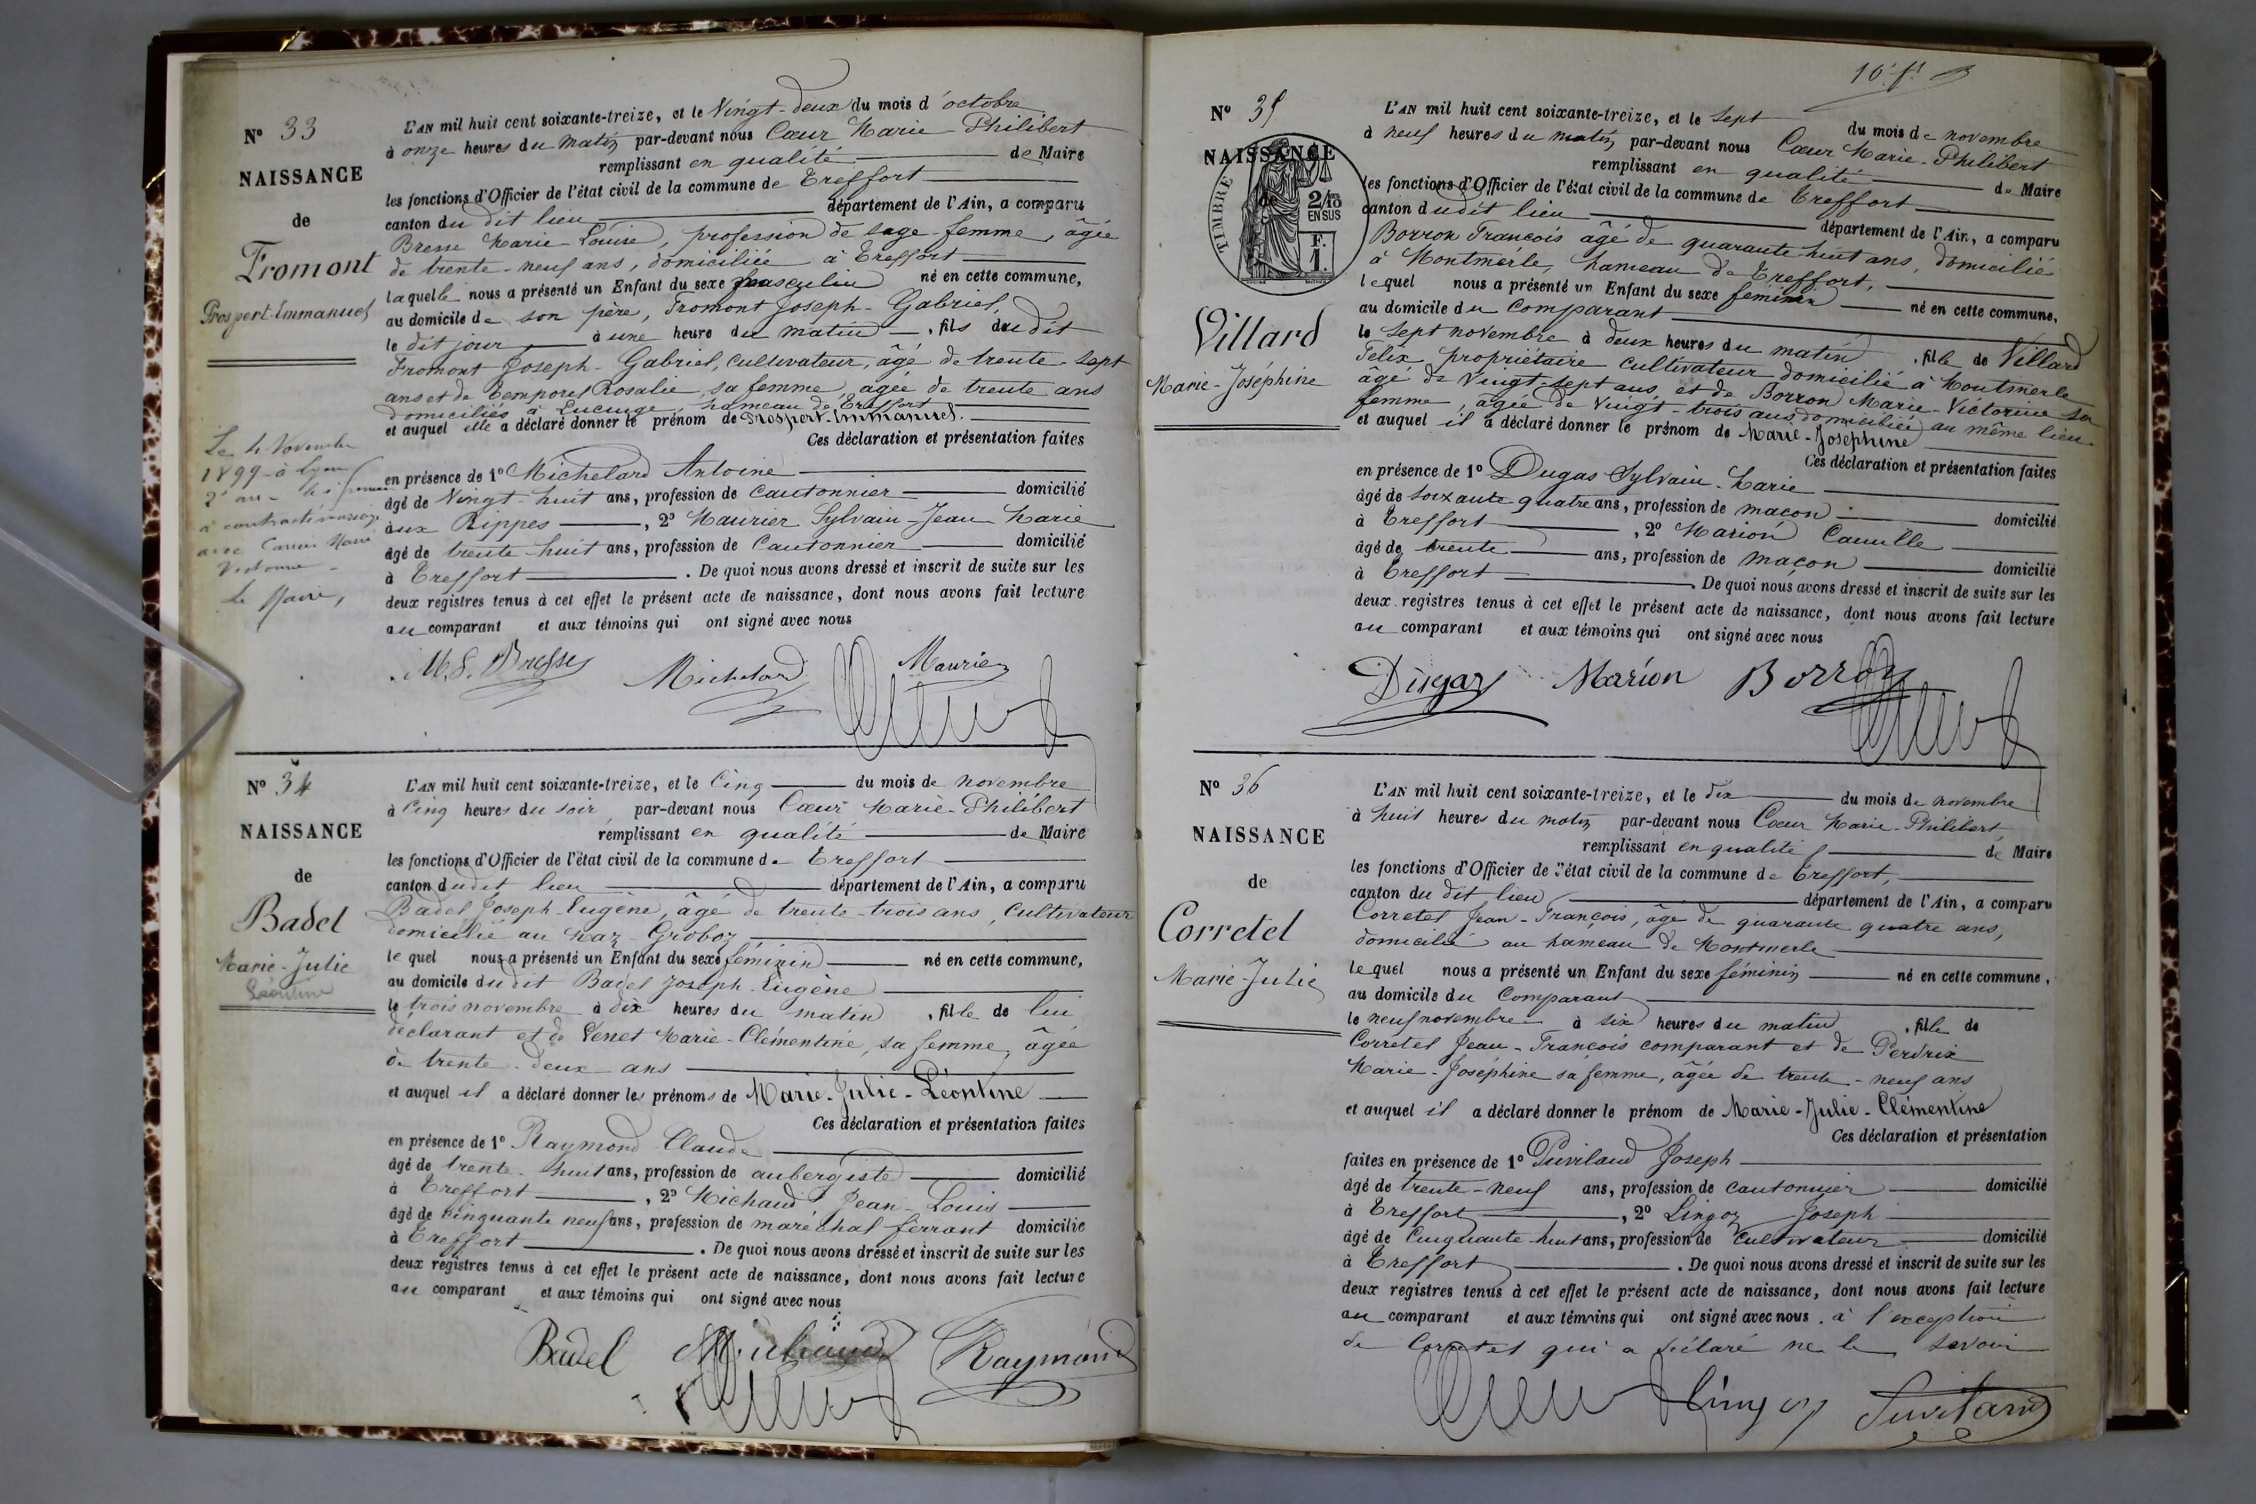 N° 33
NAISSANCE
de
Fromont
Prospert-Immanuel
L'AN mil huit cent soixante-treize, et le Vingt-deux du mois d'octobre
à onze heures du matin par-devant nous Cœur Marie-Philibert
remplissant en qualité de Maire
les fonctions d'Officier de l'état civil de la commune de Treffort
canton du dit lieu département de l'Ain, a comparu
Bresse Marie-Louise, profession de sage-femme, âgée
de trente-neuf ans, domiciliée à Treffort
laquelle nous a présenté un Enfant du sexe masculin né en cette commune,
au domicile de son père, Fromont Joseph-Gabriel,
le dit jour à une heure du matin, fils du dit
Fromont Joseph-Gabriel, cultivateur, âgé de trente-sept
ans et de Temporel Rosalie, sa femme, âgée de trente ans
domiciliés à Lucinge, hameau de Treffort
et auquel elle a déclaré donner le prénom de Prospert-Immanuel.
Ces déclaration et présentation faites
en présence de 1° Michelard Antoine
âgé de Vingt-huit ans, profession de Cantonnier domicilié
aux Rippes, 2° Maurier Sylvain-Jean Marie
âgé de trente-huit ans, profession de Cantonnier domicilié
à Treffort. De quoi nous avons dressé et inscrit de suite sur les
deux registres tenus à cet effet le présent acte de naissance, dont nous avons fait lecture
au comparant et aux témoins qui ont signé avec nous
Le 4 Novembre
1899 à Lyon
2e arr.
a contracté mariage
avec Marie
Victorine
Le Maire,
M. L. Bresse Michelard Maurier
N° 34
NAISSANCE
de
Badel
Marie-Julie
Léontine
L'AN mil huit cent soixante-treize, et le Cinq du mois de novembre
à Cinq heures du soir, par-devant nous Cœur Marie-Philibert
remplissant en qualité de Maire
les fonctions d'Officier de l'état civil de la commune de Treffort
canton dudit lieu département de l'Ain, a comparu
Badel Joseph-Eugène, âgé de trente-trois ans, Cultivateur
domicilié au Naz-Groboz
lequel nous a présenté un Enfant du sexe féminin né en cette commune,
au domicile dudit Badel Joseph-Eugène
le trois novembre à dix heures du matin, fille de lui
déclarant et de Venet Marie-Clémentine, sa femme, âgée
de trente-deux ans
et auquel il a déclaré donner les prénoms de Marie-Julie-Léontine
Ces déclaration et présentation faites
en présence de 1° Raymond Claude
âgé de trente-huit ans, profession de aubergiste domicilié
à Treffort, 2° Michaud Jean-Louis
âgé de cinquante neuf ans, profession de maréchal ferrant domicilié
à Treffort. De quoi nous avons dressé et inscrit de suite sur les
deux registres tenus à cet effet le présent acte de naissance, dont nous avons fait lecture
au comparant et aux témoins qui ont signé avec nous
Badel Michaud Raymond
10e ft
N° 35
NAISSANCE
de
TIMBRE
2/10
EN SUS
F.
1.
Villard
Marie-Joséphine
L'AN mil huit cent soixante-treize, et le sept du mois de novembre
à neuf heures du matin par-devant nous Cœur Marie-Philibert
remplissant en qualité de Maire
les fonctions d'Officier de l'état civil de la commune de Treffort
canton dudit lieu département de l'Ain, a comparu
Borron François âgé de quarante huit ans, domicilié
à Montmerle, hameau de Treffort,
lequel nous a présenté un Enfant du sexe féminin né en cette commune,
au domicile du Comparant
le sept novembre à deux heures du matin, fille de Villard
Félix propriétaire cultivateur domicilié à Montmerle
âgé de Vingt-sept ans, et de Borron Marie-Victorine sa
femme, âgée de vingt-trois ans, domiciliée au même lieu
et auquel il a déclaré donner le prénom de Marie-Joséphine
Ces déclaration et présentation faites
en présence de 1° Dugas Sylvain-Marie
âgé de soixante-quatre ans, profession de maçon domicilié
à Treffort, 2° Marion Camille
âgé de trente ans, profession de maçon domicilié
à Treffort. De quoi nous avons dressé et inscrit de suite sur les
deux registres tenus à cet effet le présent acte de naissance, dont nous avons fait lecture
au comparant et aux témoins qui ont signé avec nous
Dugas Marion Borron
N° 36
NAISSANCE
de
Corretel
Marie-Julie
L'AN mil huit cent soixante-treize, et le dix du mois de novembre
à huit heures du matin par-devant nous Cœur Marie-Philibert
remplissant en qualité de Maire
les fonctions d'Officier de l'état civil de la commune de Treffort,
canton du dit lieu département de l'Ain, a comparu
Corretel Jean-François, âgé de quarante quatre ans,
domicilié au hameau de Montmerle
lequel nous a présenté un Enfant du sexe féminin né en cette commune,
au domicile du Comparant
le neuf novembre à six heures du matin, fille de
Corretel Jean-François comparant et de Perdrix
Marie-Joséphine sa femme, âgée de trente-neuf ans
et auquel il a déclaré donner le prénom de Marie-Julie-Clémentine
Ces déclaration et présentation
faites en présence de 1° Puvilland Joseph
âgé de trente-neuf ans, profession de cantonnier domicilié
à Treffort, 2° Lingoz Joseph
âgé de Cinquante-huit ans, profession de Cultivateur domicilié
à Treffort. De quoi nous avons dressé et inscrit de suite sur les
deux registres tenus à cet effet le présent acte de naissance, dont nous avons fait lecture
au comparant et aux témoins qui ont signé avec nous. à l'exception
de Corretel qui a déclaré ne le savoir
Lingoz Puviland